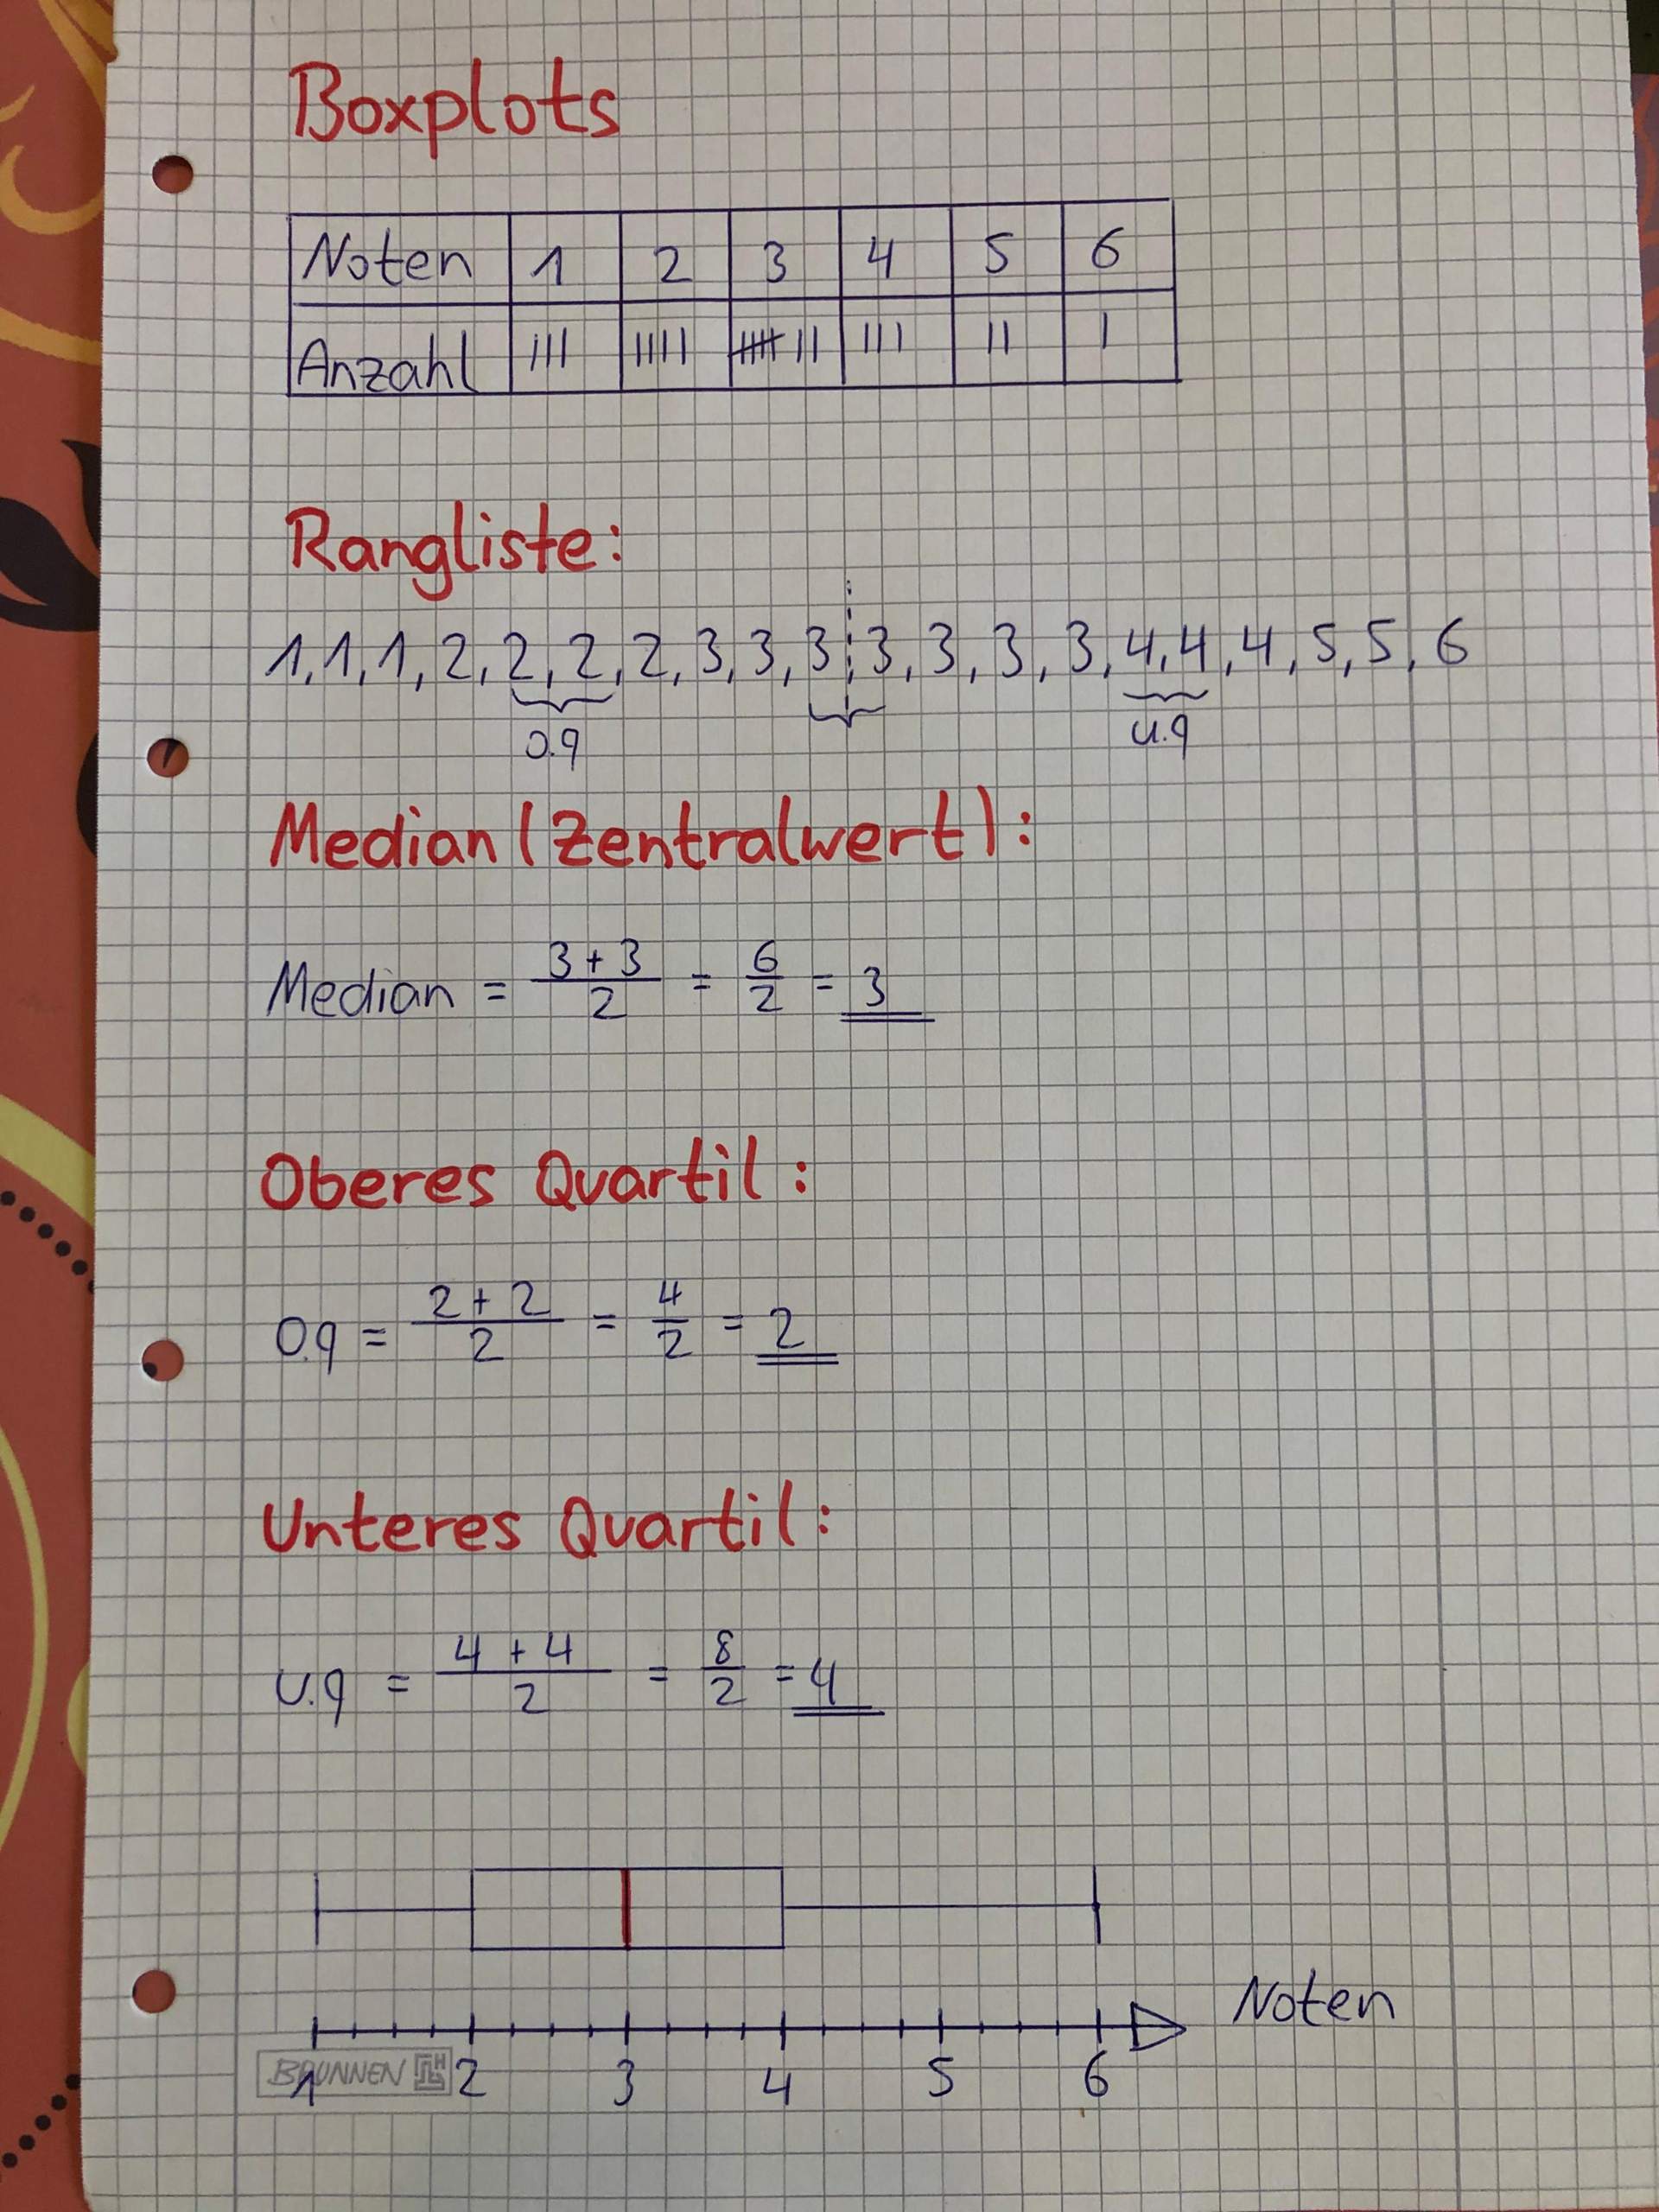 Boxplots
Noten 1 2 3 4 5 6
Anzahl ||| |||| |||| || ||| || |
Rangliste:
1,1,1,2,2,2,2,3,3,3,3,3,3,3,4,4,4,5,5,6
o.q u.q
Median (Zentralwert):
Median = (3+3)/2 = 6/2 = 3
Oberes Quartil:
O.q = (2+2)/2 = 4/2 = 2
Unteres Quartil:
U.q = (4+4)/2 = 8/2 = 4
Noten
BRUNNEN
1 2 3 4 5 6